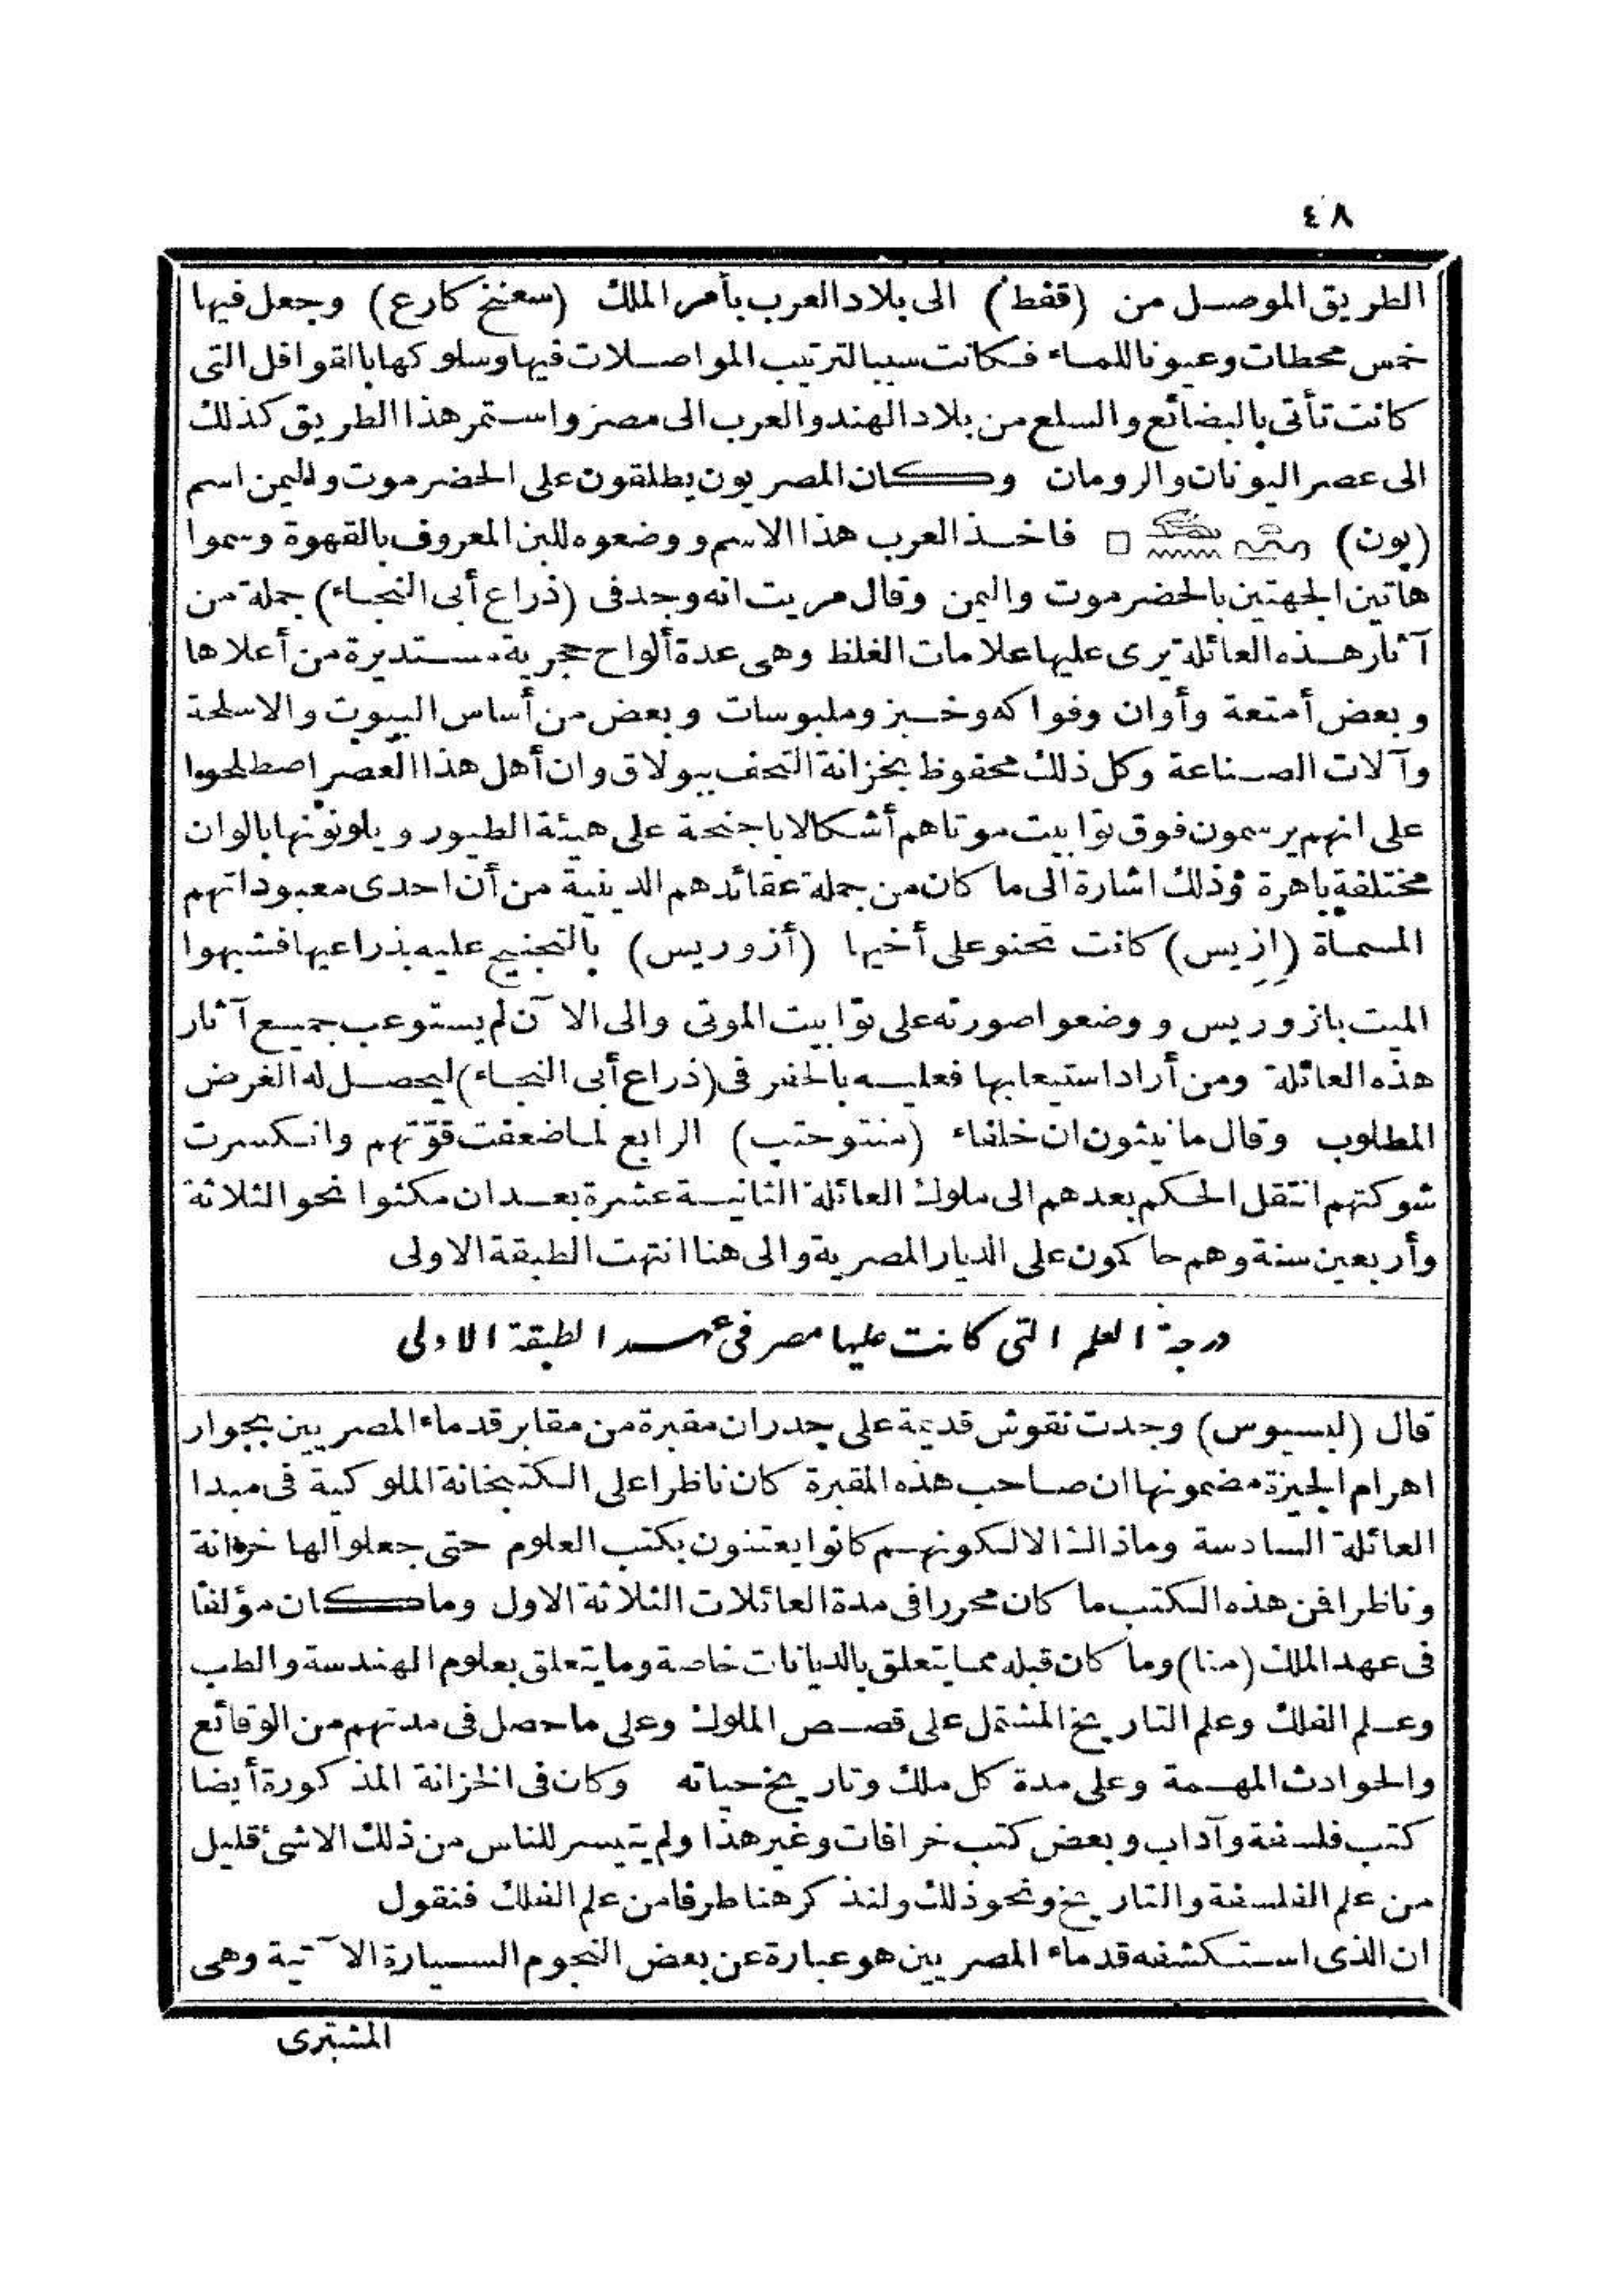 ٤٨
الطريق الموصل من (قفط) الى بلاد العرب بأمر الملك (سعنخ كارع) وجعل فيها
خمس محطات وعيونا للماء فكانت سببا لترتيب المواصلات فيها وسلوكها بالقوافل التى
كانت تأتى بالبضائع والسلع من بلاد الهند والعرب الى مصر واستمر هذا الطريق كذلك
الى عصر اليونان والرومان وكان المصريون يطلقون على الحضرموت واليمن اسم
(پون) فاخذ العرب هذا الاسم ووضعوه للبن المعروف بالقهوة وسموا
هاتين الجهتين بالحضرموت واليمن وقال مريت انه وجد فى (ذراع أبى النجاء) جملة من
آثار هذه العائلة يرى عليها علامات الغلظ وهى عدة ألواح حجرية مستديرة من أعلاها
وبعض أمتعة وأوان وفواكه وخبز وملبوسات وبعض من أساس البيوت والاسلحة
وآلات الصناعة وكل ذلك محفوظ بخزانة التحف ببولاق وان أهل هذا العصر اصطلحوا
على انهم يرسمون فوق توابيت موتاهم أشكالا باجنحة على هيئة الطيور ويلونونها بالوان
مختلفة باهرة وذلك اشارة الى ما كان من جملة عقائدهم الدينية من أن احدى معبوداتهم
المسماة (إزيس) كانت تحنو على أخيها (أزوريس) بالتجنيح عليه بذراعيها فشبهوا
الميت بازوريس ووضعوا صورته على توابيت الموتى والى الآن لم يستوعب جميع آثار
هذه العائلة ومن أراد استيعابها فعليه بالحفر فى (ذراع أبى النجاء) ليحصل له الغرض
المطلوب وقال مانيثون ان خلفاء (منتوحتب) الرابع لما ضعفت قوّتهم وانكسرت
شوكتهم انتقل الحكم بعدهم الى ملوك العائلة الثانية عشرة بعد ان مكثوا نحو الثلاثة
وأربعين سنة وهم حاكمون على الديار المصرية والى هنا انتهت الطبقة الاولى
درجة العلم التى كانت عليها مصر فى عهد الطبقة الاولى
قال (لبسيوس) وجدت نقوش قديمة على جدران مقبرة من مقابر قدماء المصريين بجوار
اهرام الجيزة مضمونها ان صاحب هذه المقبرة كان ناظرا على الكتبخانة الملوكية فى مبدا
العائلة السادسة وماذاك الا لكونهم كانوا يعتنون بكتب العلوم حتى جعلوا لها خزانة
وناظرا فمن هذه الكتب ما كان محررا فى مدة العائلات الثلاثة الاول وما كان مؤلفا
فى عهد الملك (منا) وما كان قبله مما يتعلق بالديانات خاصة وما يتعلق بعلوم الهندسة والطب
وعلم الفلك وعلم التاريخ المشتمل على قصص الملوك وعلى ما حصل فى مدتهم من الوقائع
والحوادث المهمة وعلى مدة كل ملك وتاريخ حياته وكان فى الخزانة المذكورة أيضا
كتب فلسفة وآداب وبعض كتب خرافات وغير هذا ولم يتيسر للناس من ذلك الا شئ قليل
من علم الفلسفة والتاريخ ونحو ذلك ولنذكر هنا طرفا من علم الفلك فنقول
ان الذى استكشفه قدماء المصريين هو عبارة عن بعض النجوم السيارة الآتية وهى
المشترى